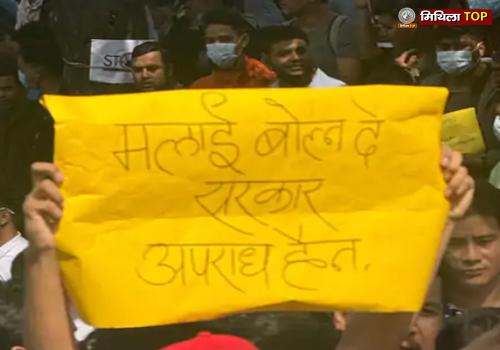 मिथिला TOP
मलाई बोल्न दे
सरकार
अपराध हैन.